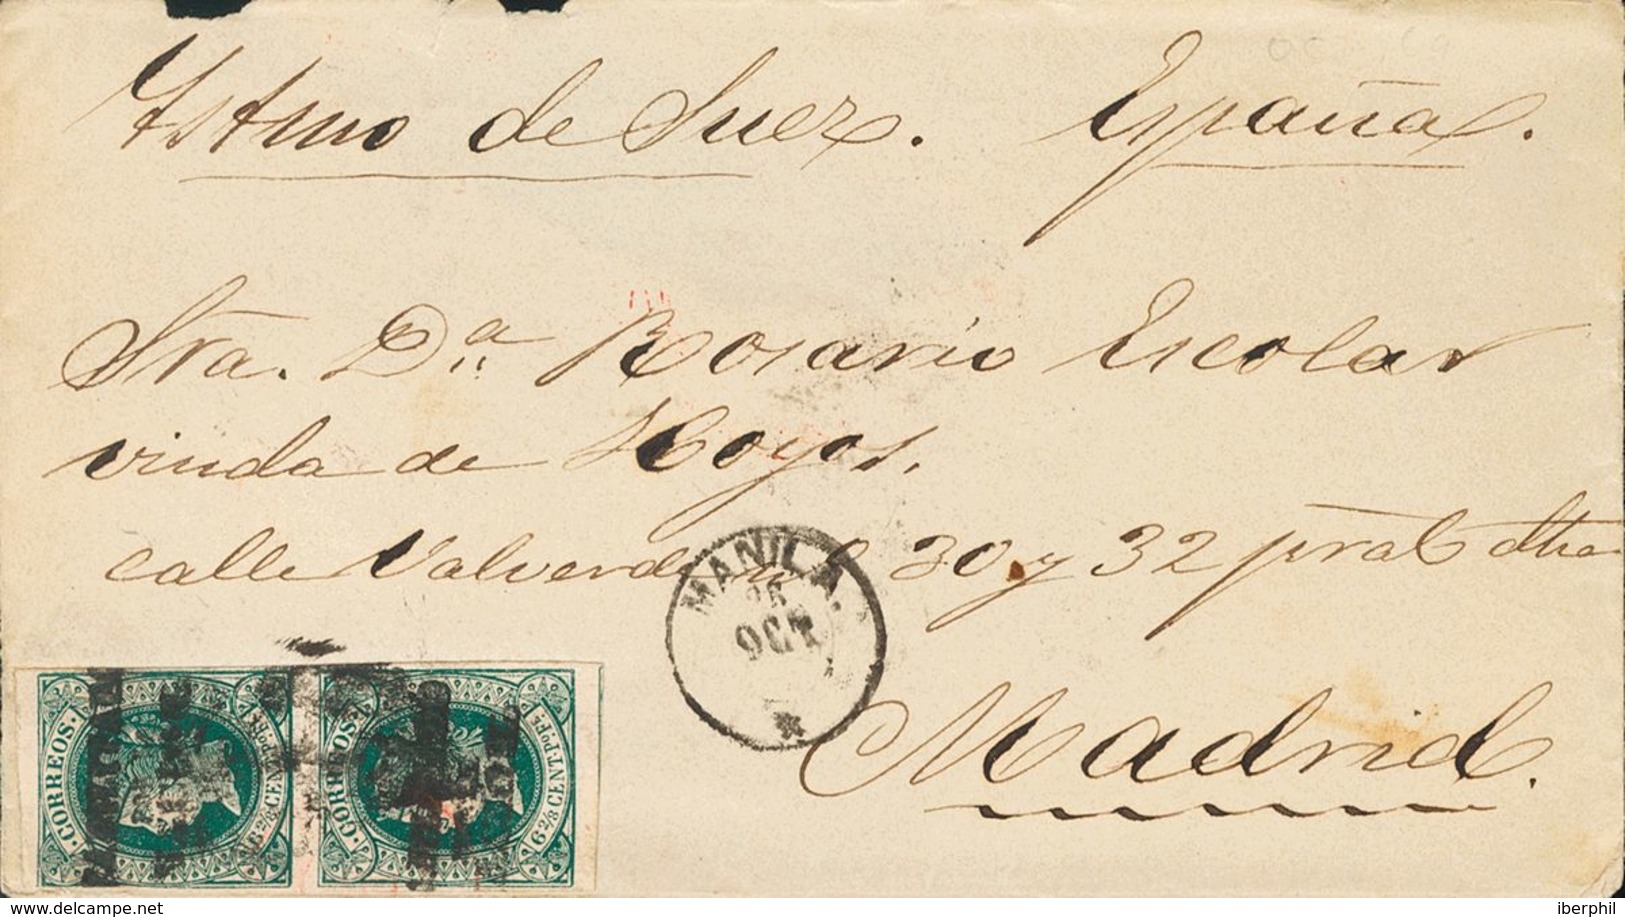 Istmo de Suez. España.
Sra. Dª Rosario Escolar
viuda de Hoyos.
calle Valverde nº 30 y 32 pral dha
Madrid.
MANILA.
26
OCT
CORREOS
6 2/8 CENT PO FE
CORREOS
6 2/8 CENT PO FE
iberphil